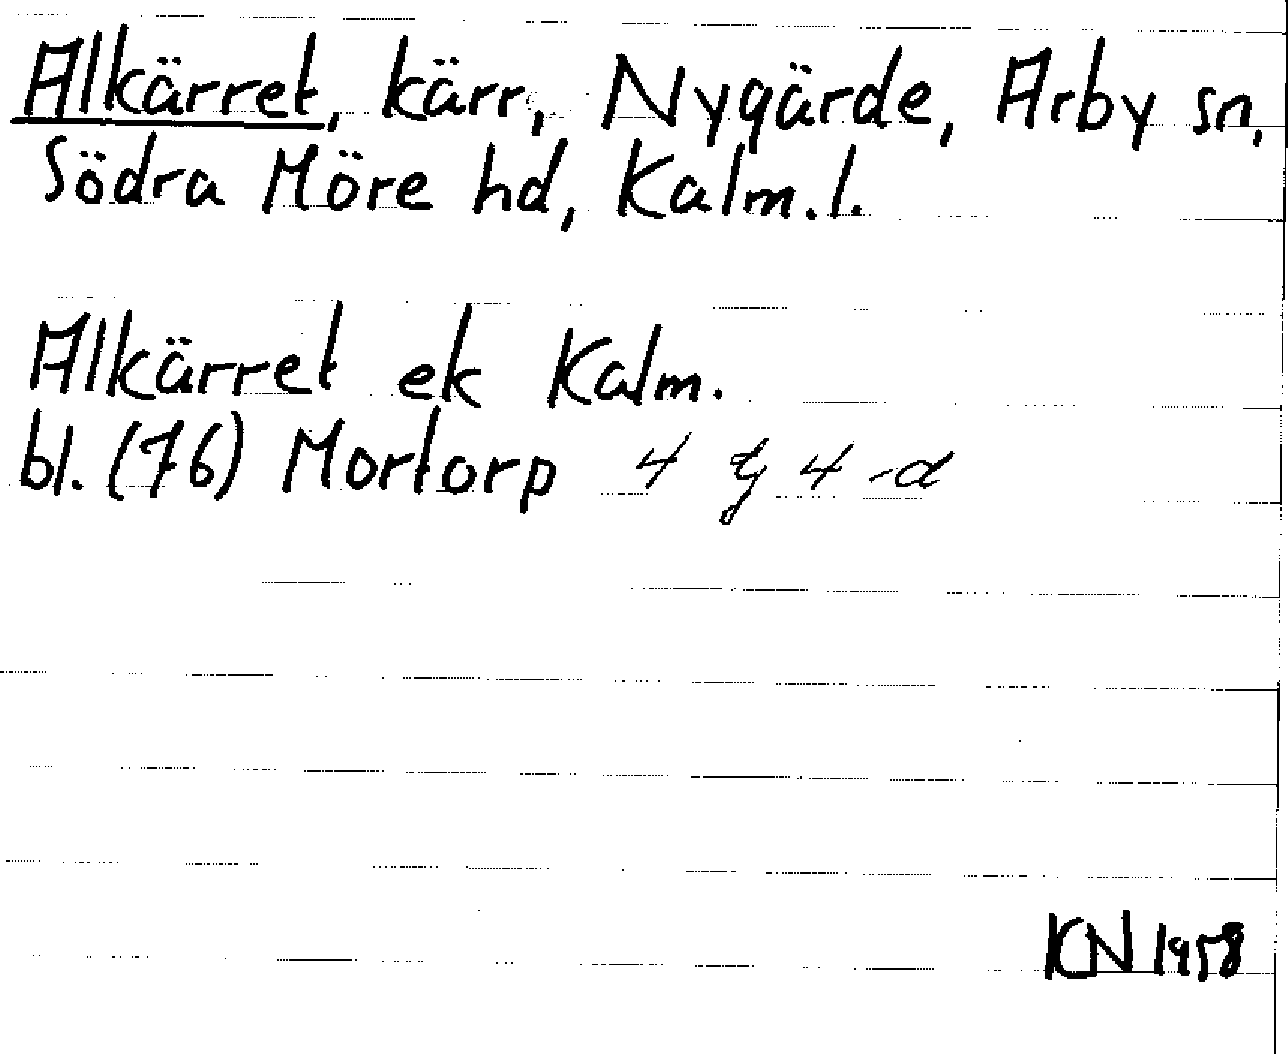 Alkärret, kärr, Nygärde, Arby sn,
Södra Möre hd, Kalm. l.
Alkärret ek Kalm.
bl. (76) Mortorp 4 g 4 -d
KN 1958